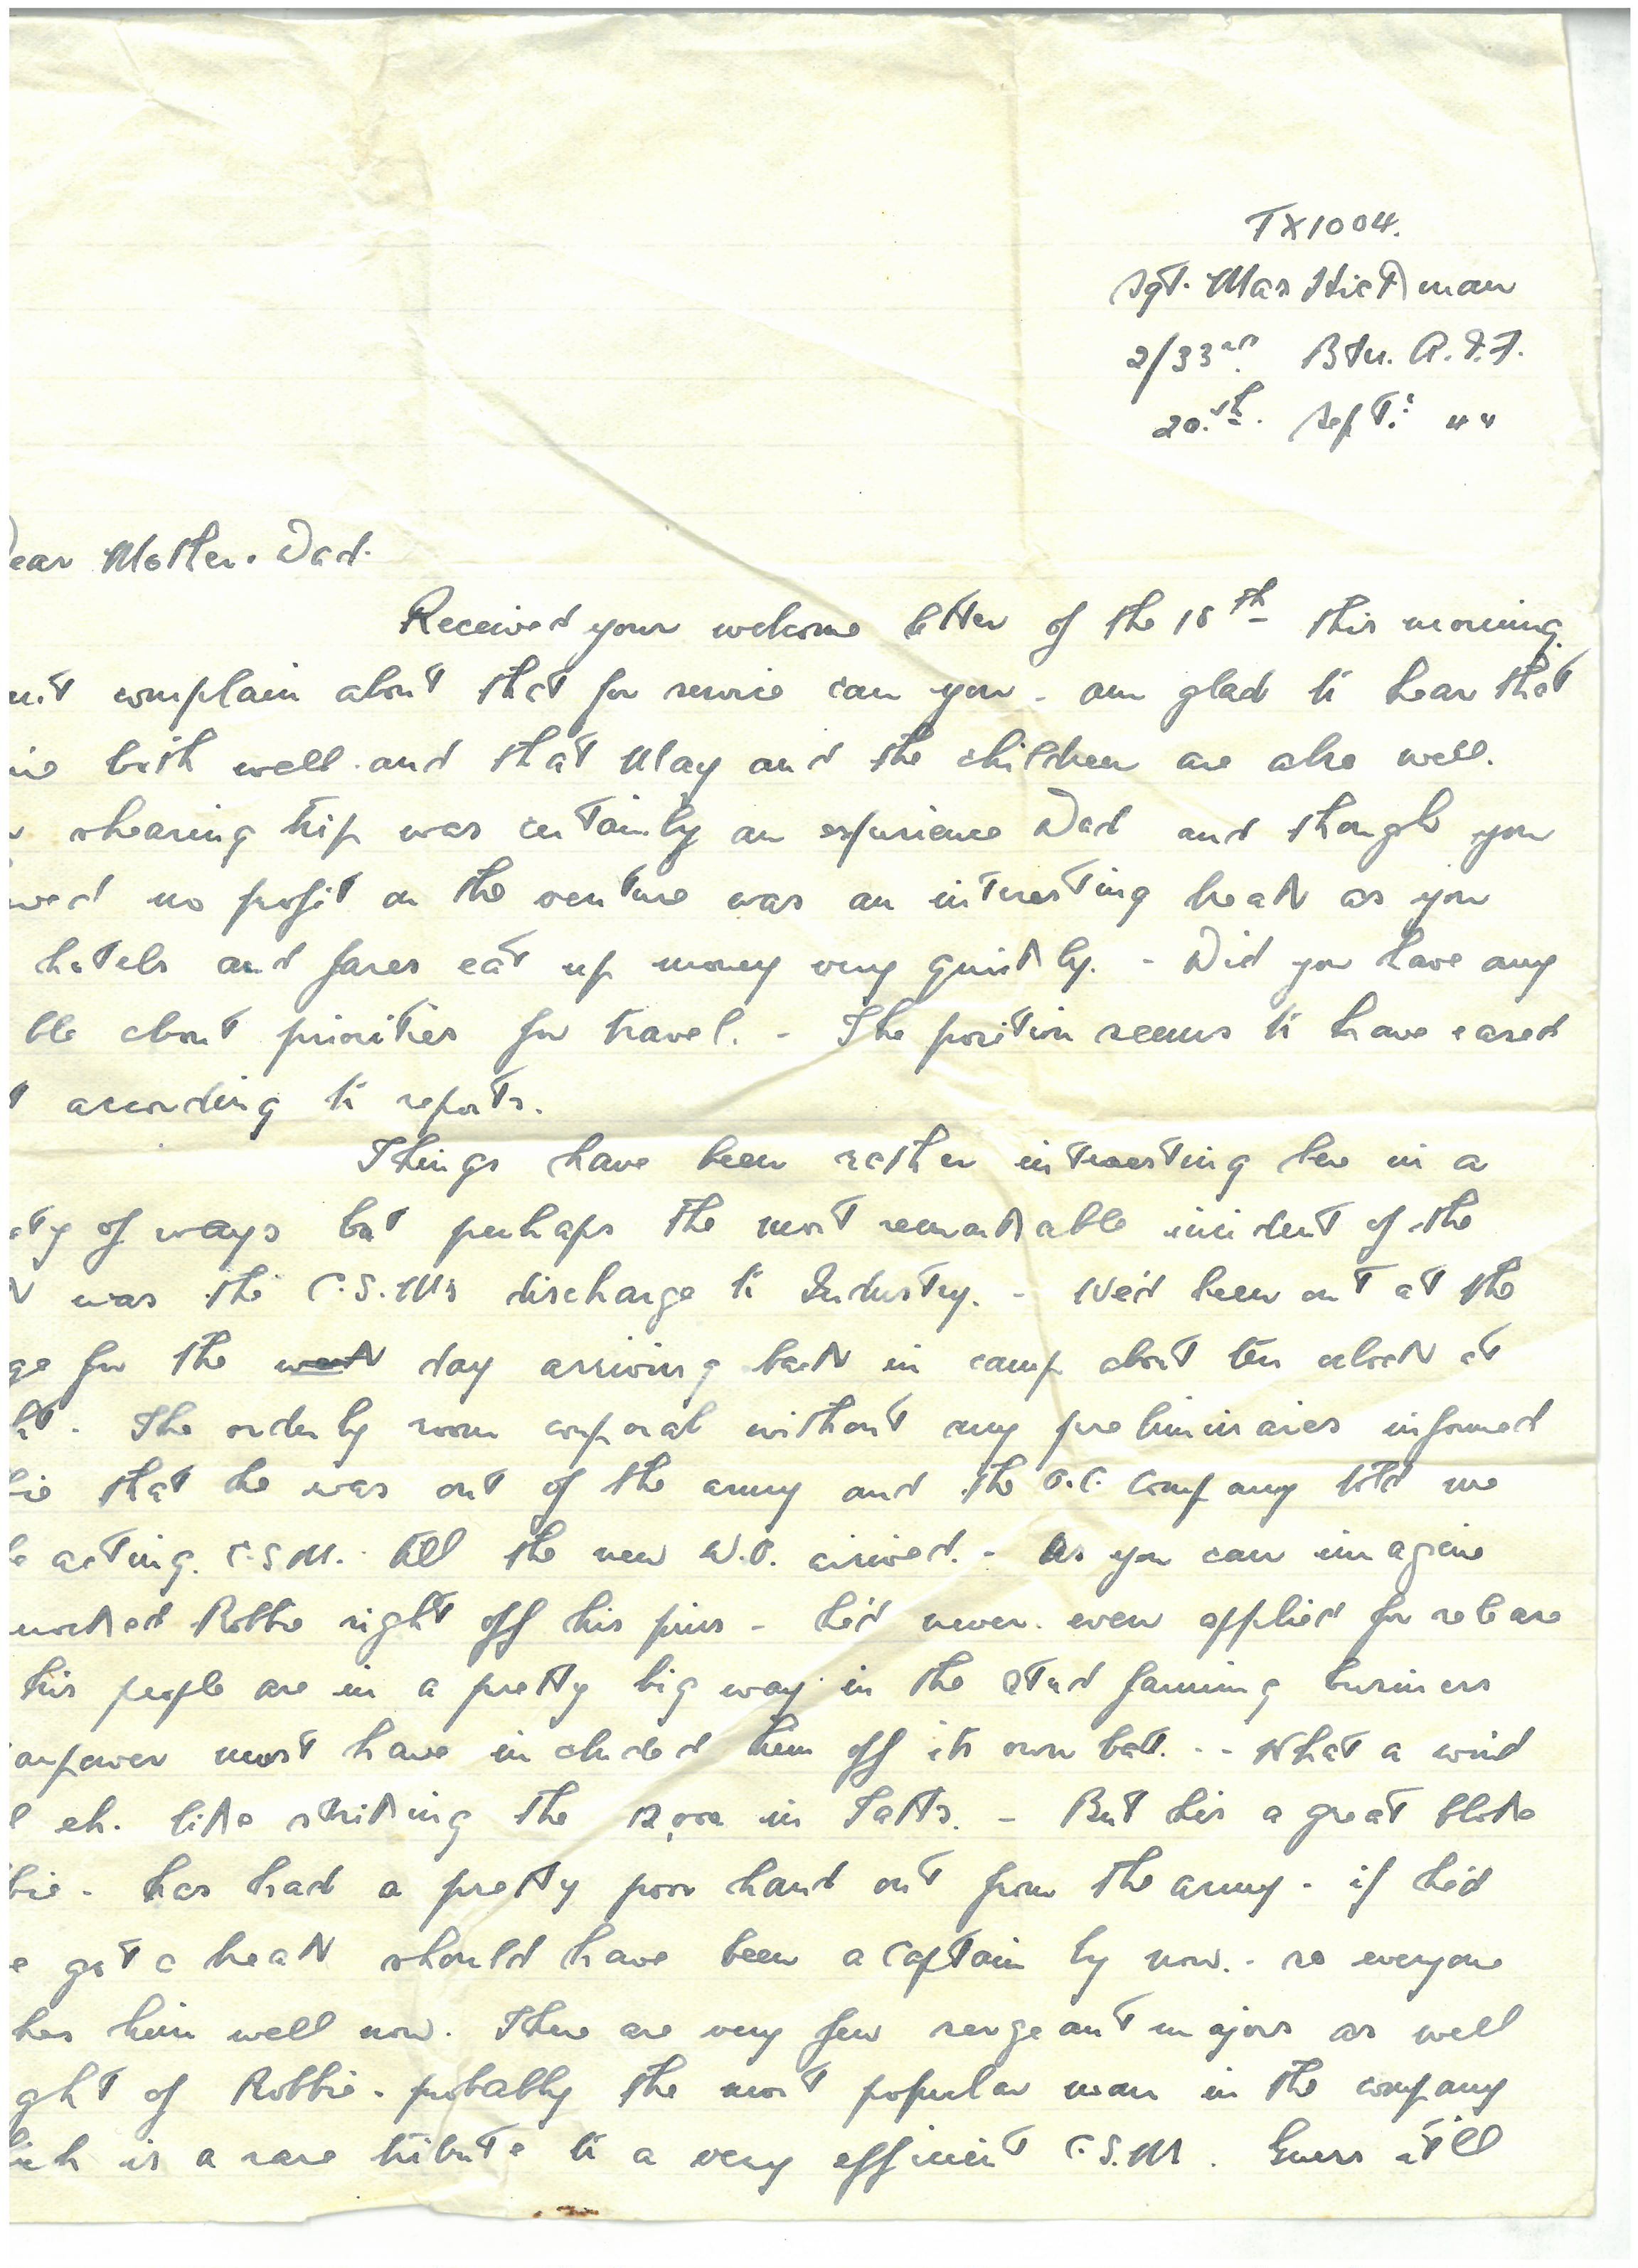 TX1004.
Sgt. Max Hickman
2/33rd Btn. A.I.F.
20.th. Sept: 44
Dear Mother. Dad.
Received your welcome letter of the 18th this morning.
n't complain about that for service can you - am glad to hear that
both well. and that May and the children are also well.
shearing trip was certainly an experience Dad and though you
wed no profit on the venture was an interesting break as you
hotels and fares eat up money very quickly. - Did you have any
ble about priorities for travel. - The position seems to have eased
t according to reports.
Things have been rather interesting here in a
ety of ways but perhaps the most remarkable incident of the
k was the C.S.Ms discharge to Industry. - We'd been out at the
ge for the week day arriving back in camp about ten oclock at
ht. The orderly room corporal without any preliminaries informed
bie that he was out of the army and the O.C. Company told me
e acting. C.S.M. till the new W.O. arrived. - As you can imagine
nocked Robbie right off his pins - he'd never. even applied for release
his people are in a pretty big way in the stud farming business
anpower must have included him off its own bat. - - What a wind
l eh. like striking the 12,000 in Tatts. - But his a great bloke
bie - has had a pretty poor hand out from the army - if he'd
e got a break should have been a Captain by now. - so everyone
hes him well now. There are very few sergeant majors as well
ght of Robbie - probably the most popular man in the company
ich is a rare tribute to a very efficient C.S.M. Guess it'll